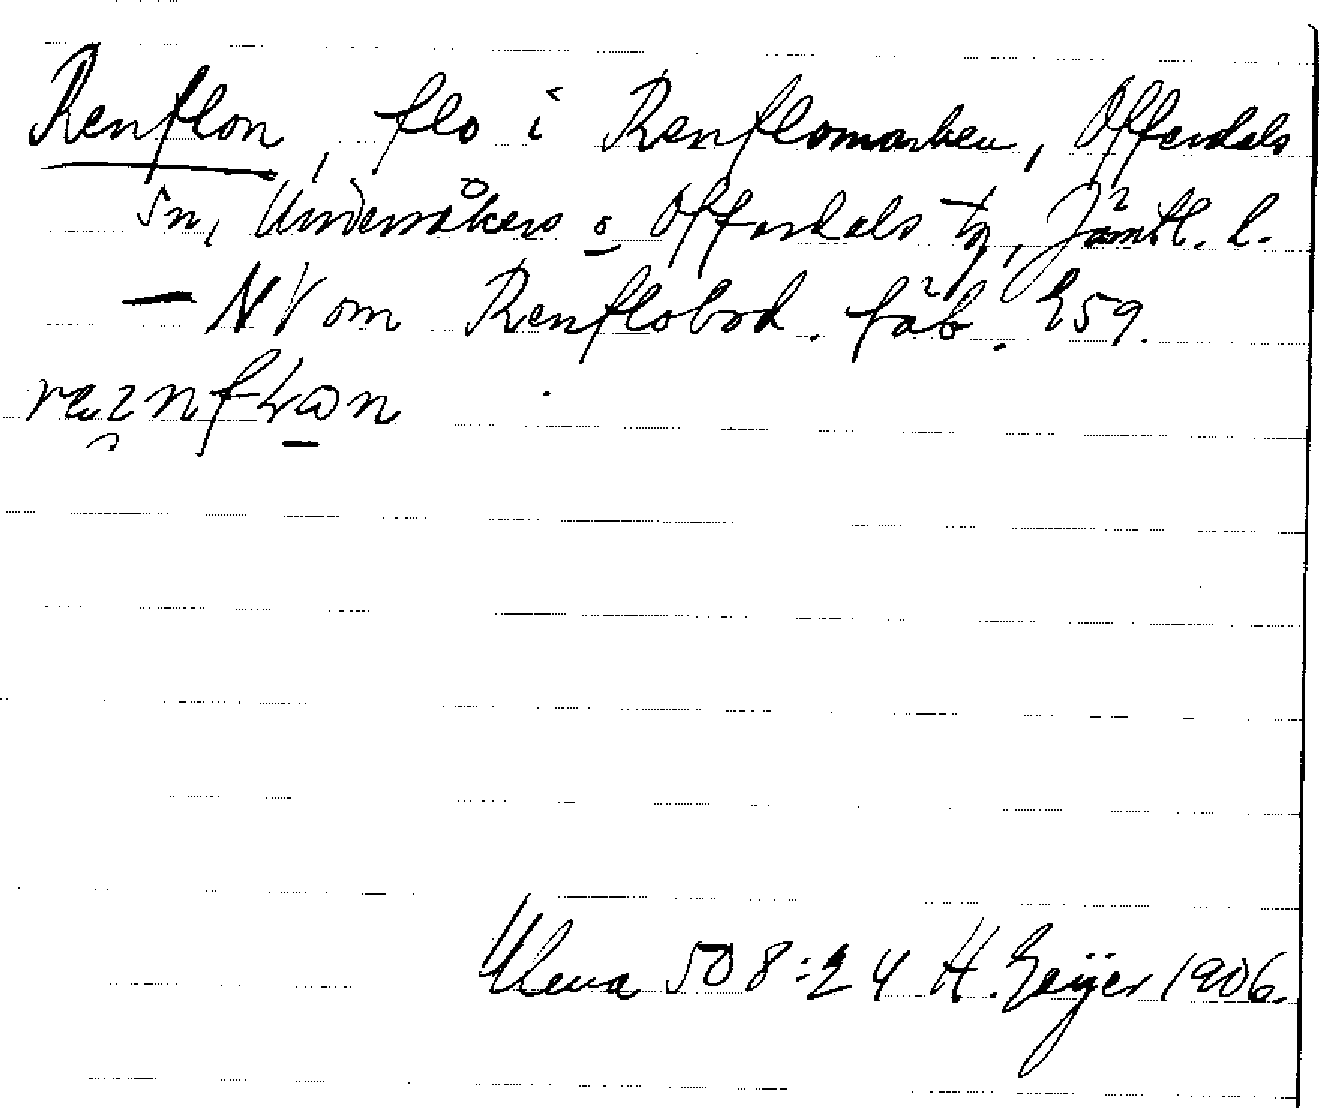 Renflon, flo i Renflomarken, Offerdals
sn, Undersåkers o Offerdals tg, Jämtl. l.
— NV om Renflobod. fäb. G59.
Uleva 508:24 H. Geijer 1906.